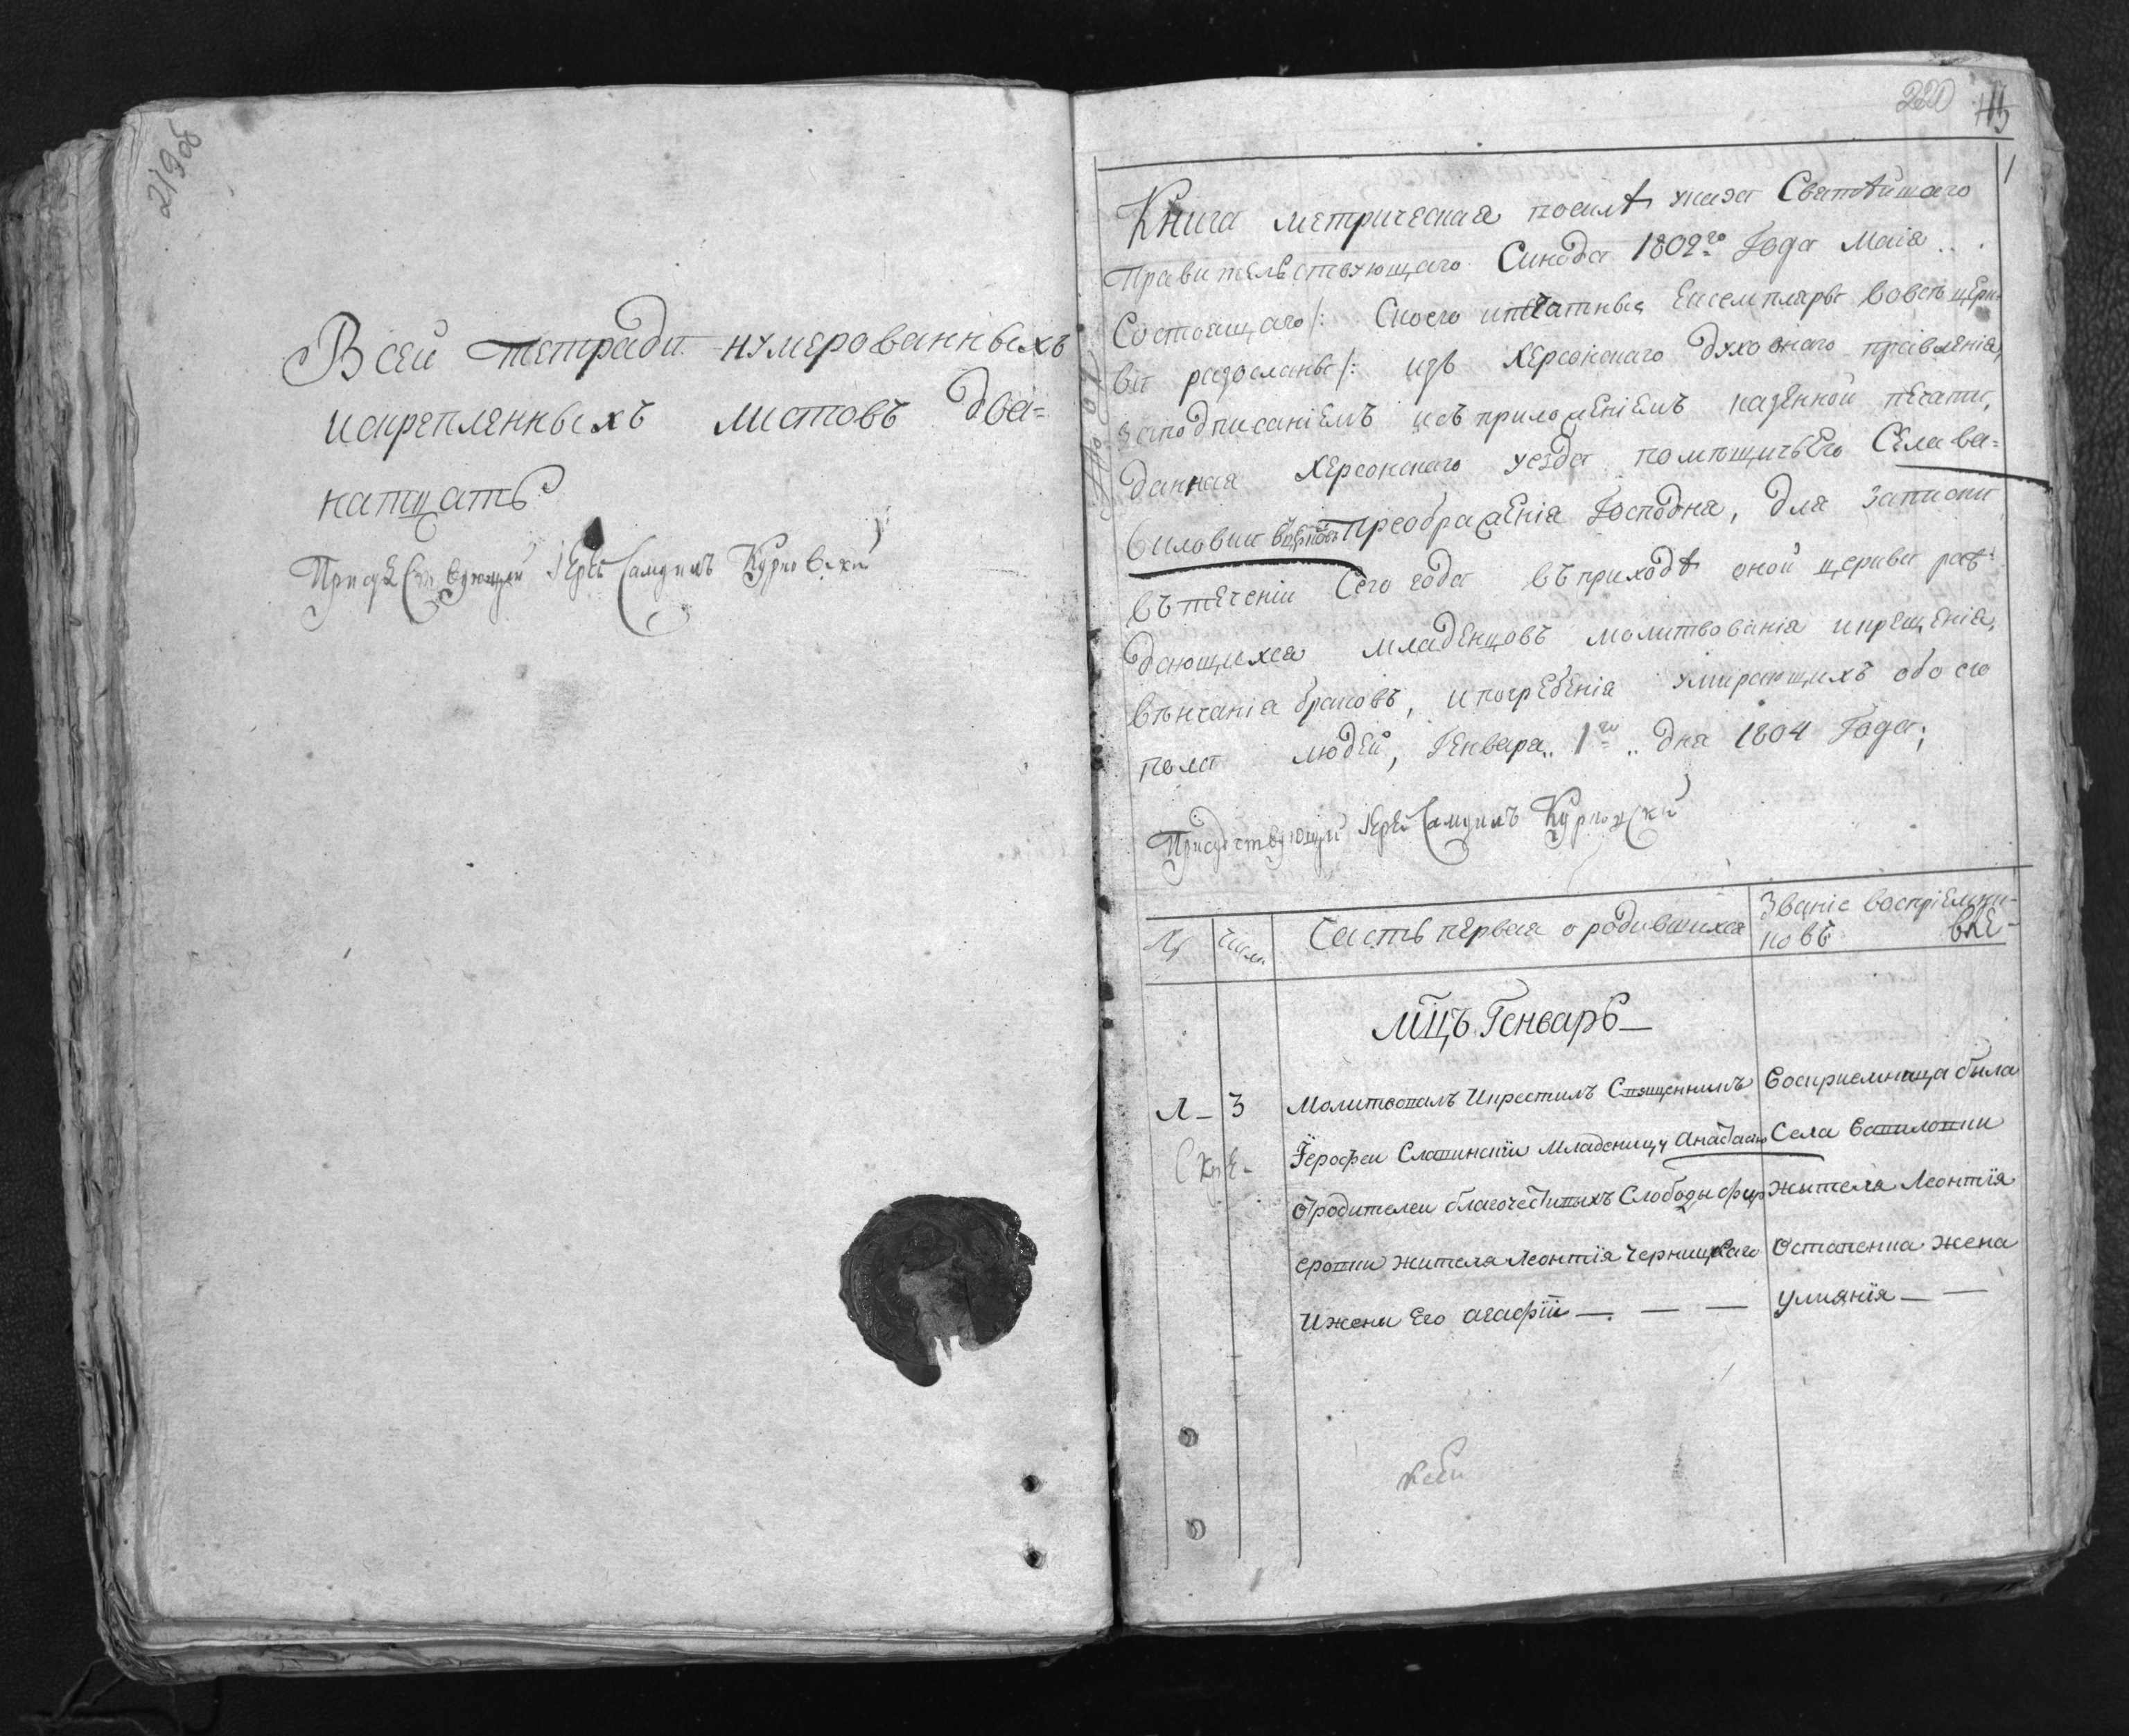 219об
Всей тетради нумерованныхъ
искрепленныхъ листовъ два=
натцать
Присудствующий Іерей Самуилъ Курповский
220
1
Книга метрическая посилѣ указа Святѣйшаго
Правительствующаго Синода 1802го Года Маія ..
Состоящаго /: Съкоего ипечатные Екземпляры вовсѣ церк=
ви разосланы /: изъ Херсонскаго духовнаго правленія,
заподписаніемъ исъприложеніемъ казенной печати,
данная Херсонскаго уезда помѣщичьего Села ва=
виловки Преображенія Господня, для записки
въ теченіи Сего года въ приходѣ оной церкви раж=
дающихся младенцовъ молитвованія икрещенія,
вѣнчанія браковъ, ипогребенія умирающихъ обоего
пола людей, Генваря .. 1го .. дня 1804 Года;
Присудствующій Іерей Самуилъ Курповский
Числ. Часть первая о родившихся Званіе воспріемни-
ковъ
мцъ Генварь
Л - 3 Молитвовалъ Икрестилъ Священникъ Восприемница была
Іерофеи Славинскій Младеницу анастасію Села Вавиловки
Ѿродителеи благочестивыхъ Слободы фир жытеля Леонтія
еровки жителя Леонтія Черницкаго Остапенка жена
Ижени Его агафіи — — — улиянія — —